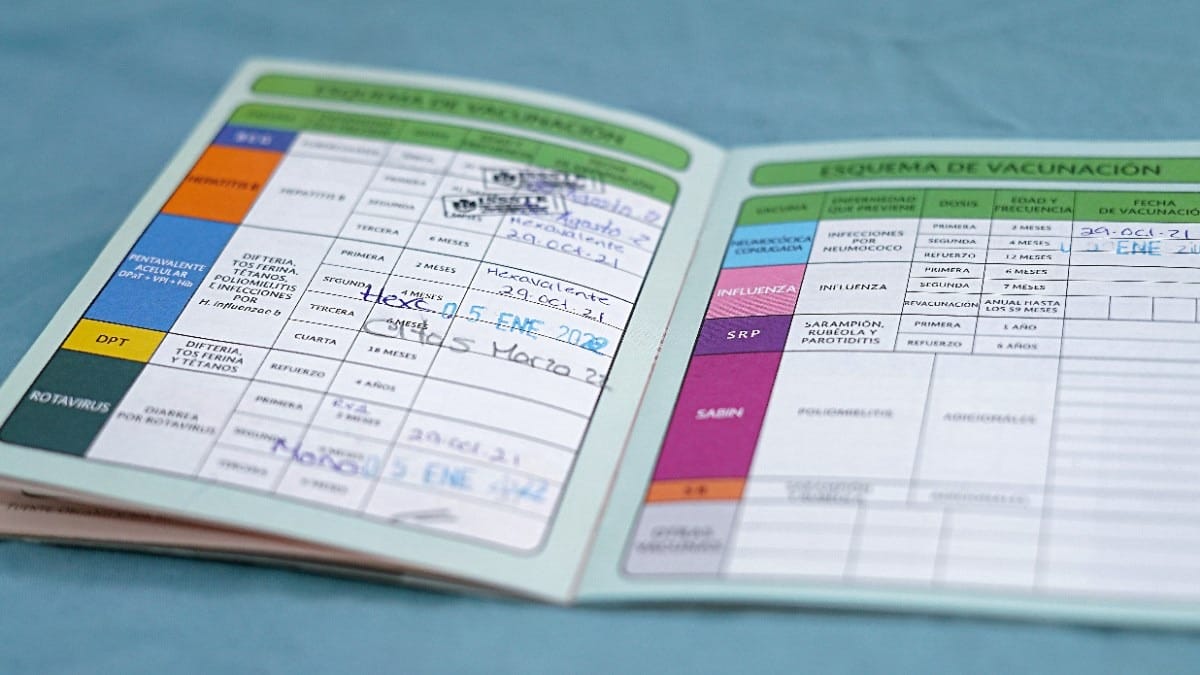 ESQUEMA DE VACUNACIÓN
BCG
HEPATITIS B
HEPATITIS B
PRIMERA
SEGUNDA
Agosto 2
TERCERA
6 MESES
Hexavalente
29.Oct.21
PENTAVALENTE
ACELULAR
DPaT + VPI + Hib
DIFTERIA,
TOS FERINA,
TÉTANOS,
POLIOMIELITIS
E INFECCIONES
POR
H. influenzae b
PRIMERA
2 MESES
Hexavalente
29.Oct.21
SEGUNDA
4 MESES
Hexa.
05 ENE 2022
TERCERA
6 MESES
5 Marzo 22
CUARTA
18 MESES
DPT
DIFTERIA,
TOS FERINA
Y TÉTANOS
REFUERZO
4 AÑOS
ROTAVIRUS
DIARREA
POR ROTAVIRUS
PRIMERA
2 MESES
29.Oct.21
SEGUNDA
05 ENE 2022
TERCERA
ESQUEMA DE VACUNACIÓN
VACUNA
ENFERMEDAD
QUE PREVIENE
DOSIS
EDAD Y
FRECUENCIA
FECHA
DE VACUNACIÓ
NEUMOCÓCICA
CONJUGADA
INFECCIONES
POR
NEUMOCOCO
PRIMERA
2 MESES
29.Oct.21
SEGUNDA
4 MESES
ENE
REFUERZO
12 MESES
INFLUENZA
INFLUENZA
PRIMERA
6 MESES
SEGUNDA
7 MESES
REVACUNACIÓN
ANUAL HASTA
LOS 59 MESES
SRP
SARAMPIÓN,
RUBÉOLA Y
PAROTIDITIS
PRIMERA
1 AÑO
REFUERZO
6 AÑOS
SABIN
POLIOMIELITIS
ADICIONALES
SR
ADICIONALES
OTRAS
VACUNAS